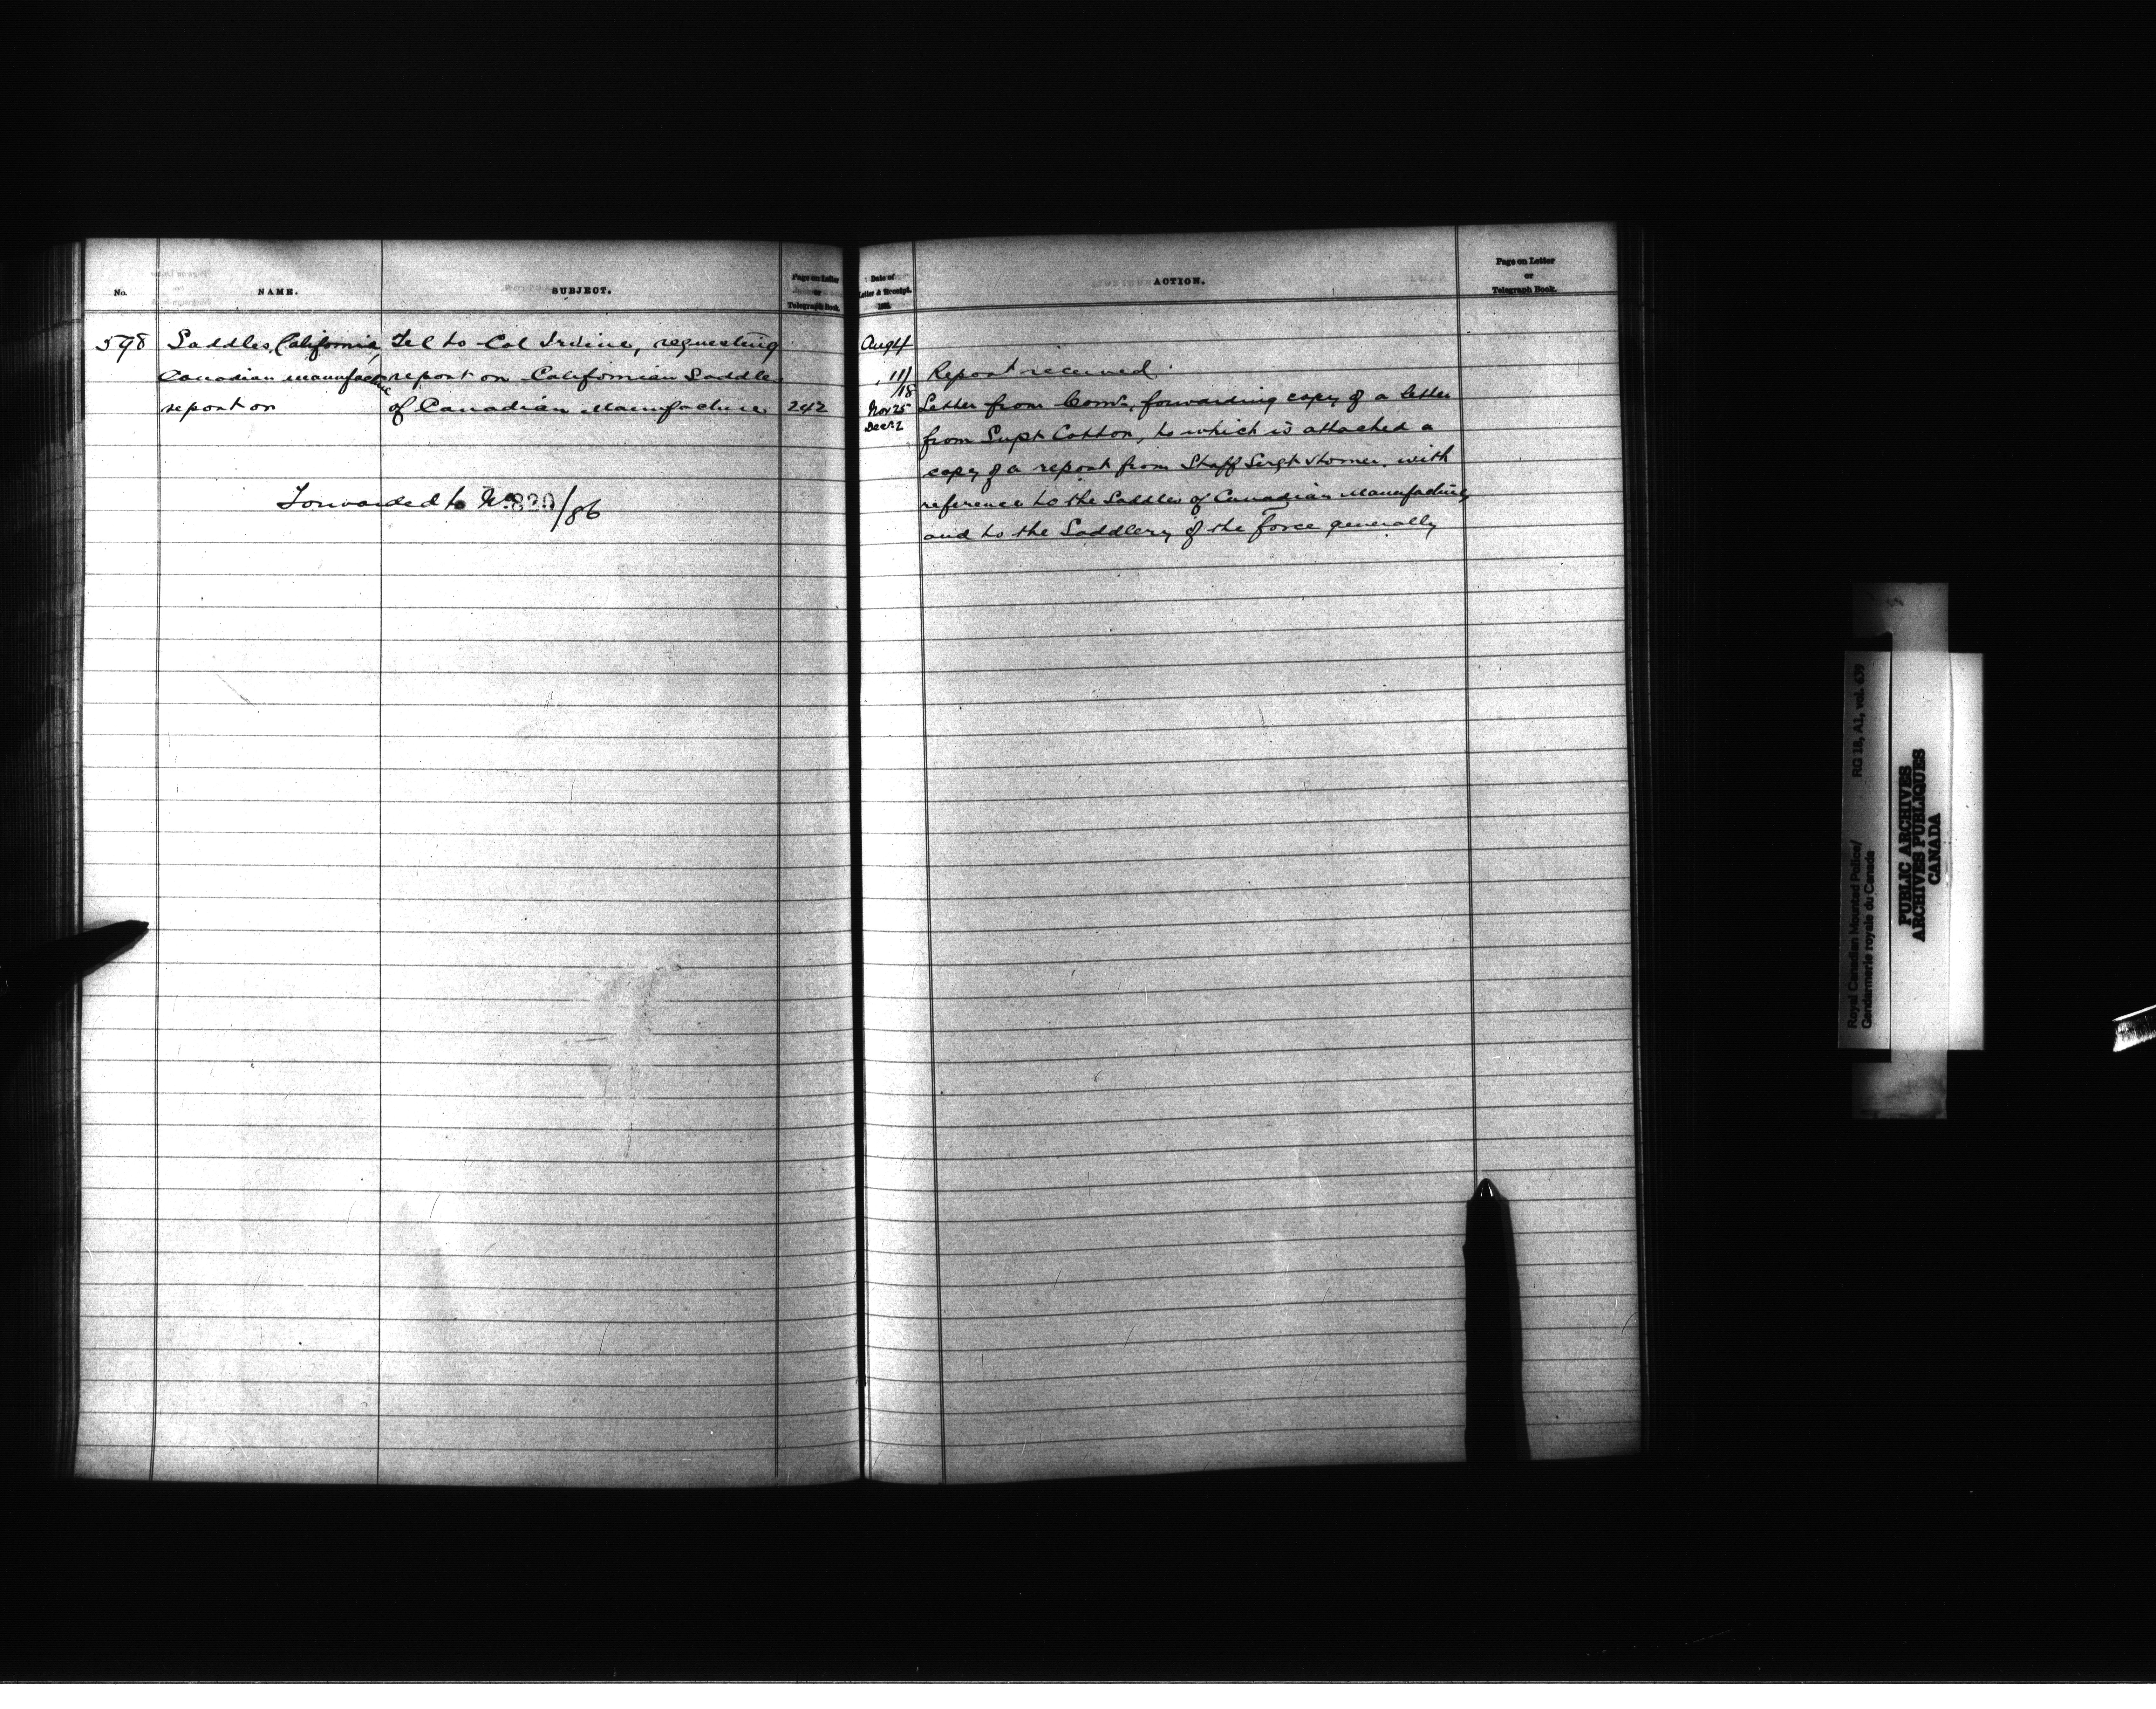 No.
NAME.
SUBJECT.
Page on Letter
or
Telegraph Book.
598
Saddles, California,
Canadian manufacture
report on
Tel to Col Irvine, requesting
report on Californian Saddles
of Canadian Manufacture
242
Forwarded to No. 830/86
Date of
Letter & Receipt.
188
ACTION.
Page on Letter
or
Telegraph Book.
Aug 4
" 11/18
Report received.
Nov 25
Dec. 2
Letter from Comr. forwarding copy of a letter
from Supt Cotton, to which is attached a
copy of a report from Staff Sergt Horner. with
reference to the Saddles of Canadian Manufacture,
and to the Saddlery of the Force generally
Royal Canadian Mounted Police/
Gendarmerie royale du Canada
RG 18, A1, vol. 639
PUBLIC ARCHIVES
ARCHIVES PUBLIQUES
CANADA